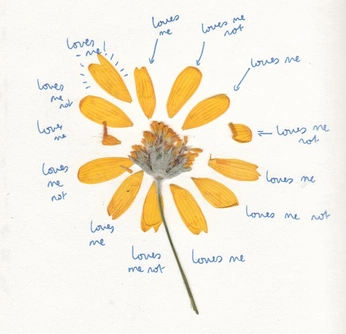 loves
me!
loves
me
loves me
not
loves me
loves me
not
loves me
loves me not
loves me
loves
me not
loves
me
loves
me
not
loves
me
loves
me
not